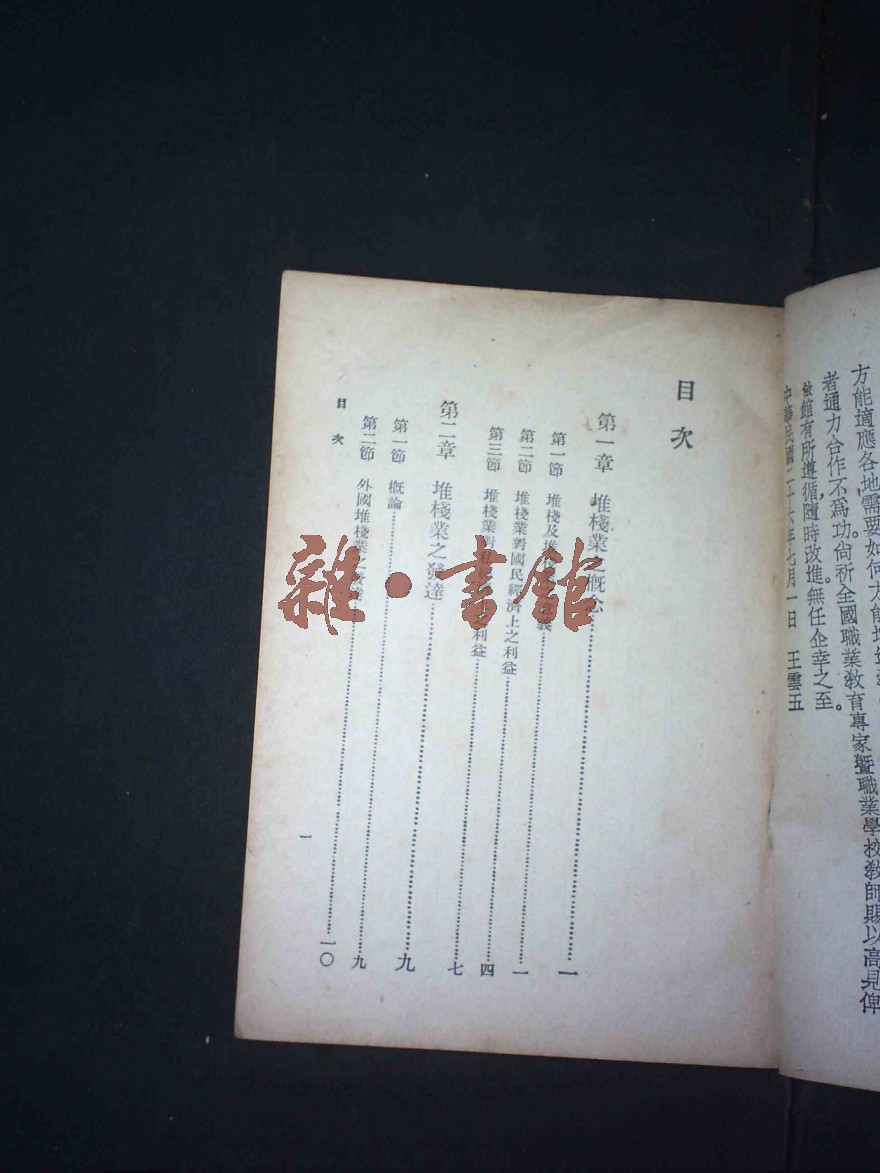 方能適應各地需要如何方能
者通力合作不爲功尙祈全國職業教育專家曁職業學校教師賜以高見俾
敝館有所遵循隨時改進無任企幸之至。
中華民國二十六年七月一日 王雲五
目次
第一章 堆棧業之概念……一
第一節 堆棧及堆棧……義……一
第二節 堆棧業對國民經濟上之利益……四
第三節 堆棧業對……利益……七
第二章 堆棧業之發達……九
第一節 概論……九
第二節 外國堆棧業之發達……一〇
目次
一
雜·書館